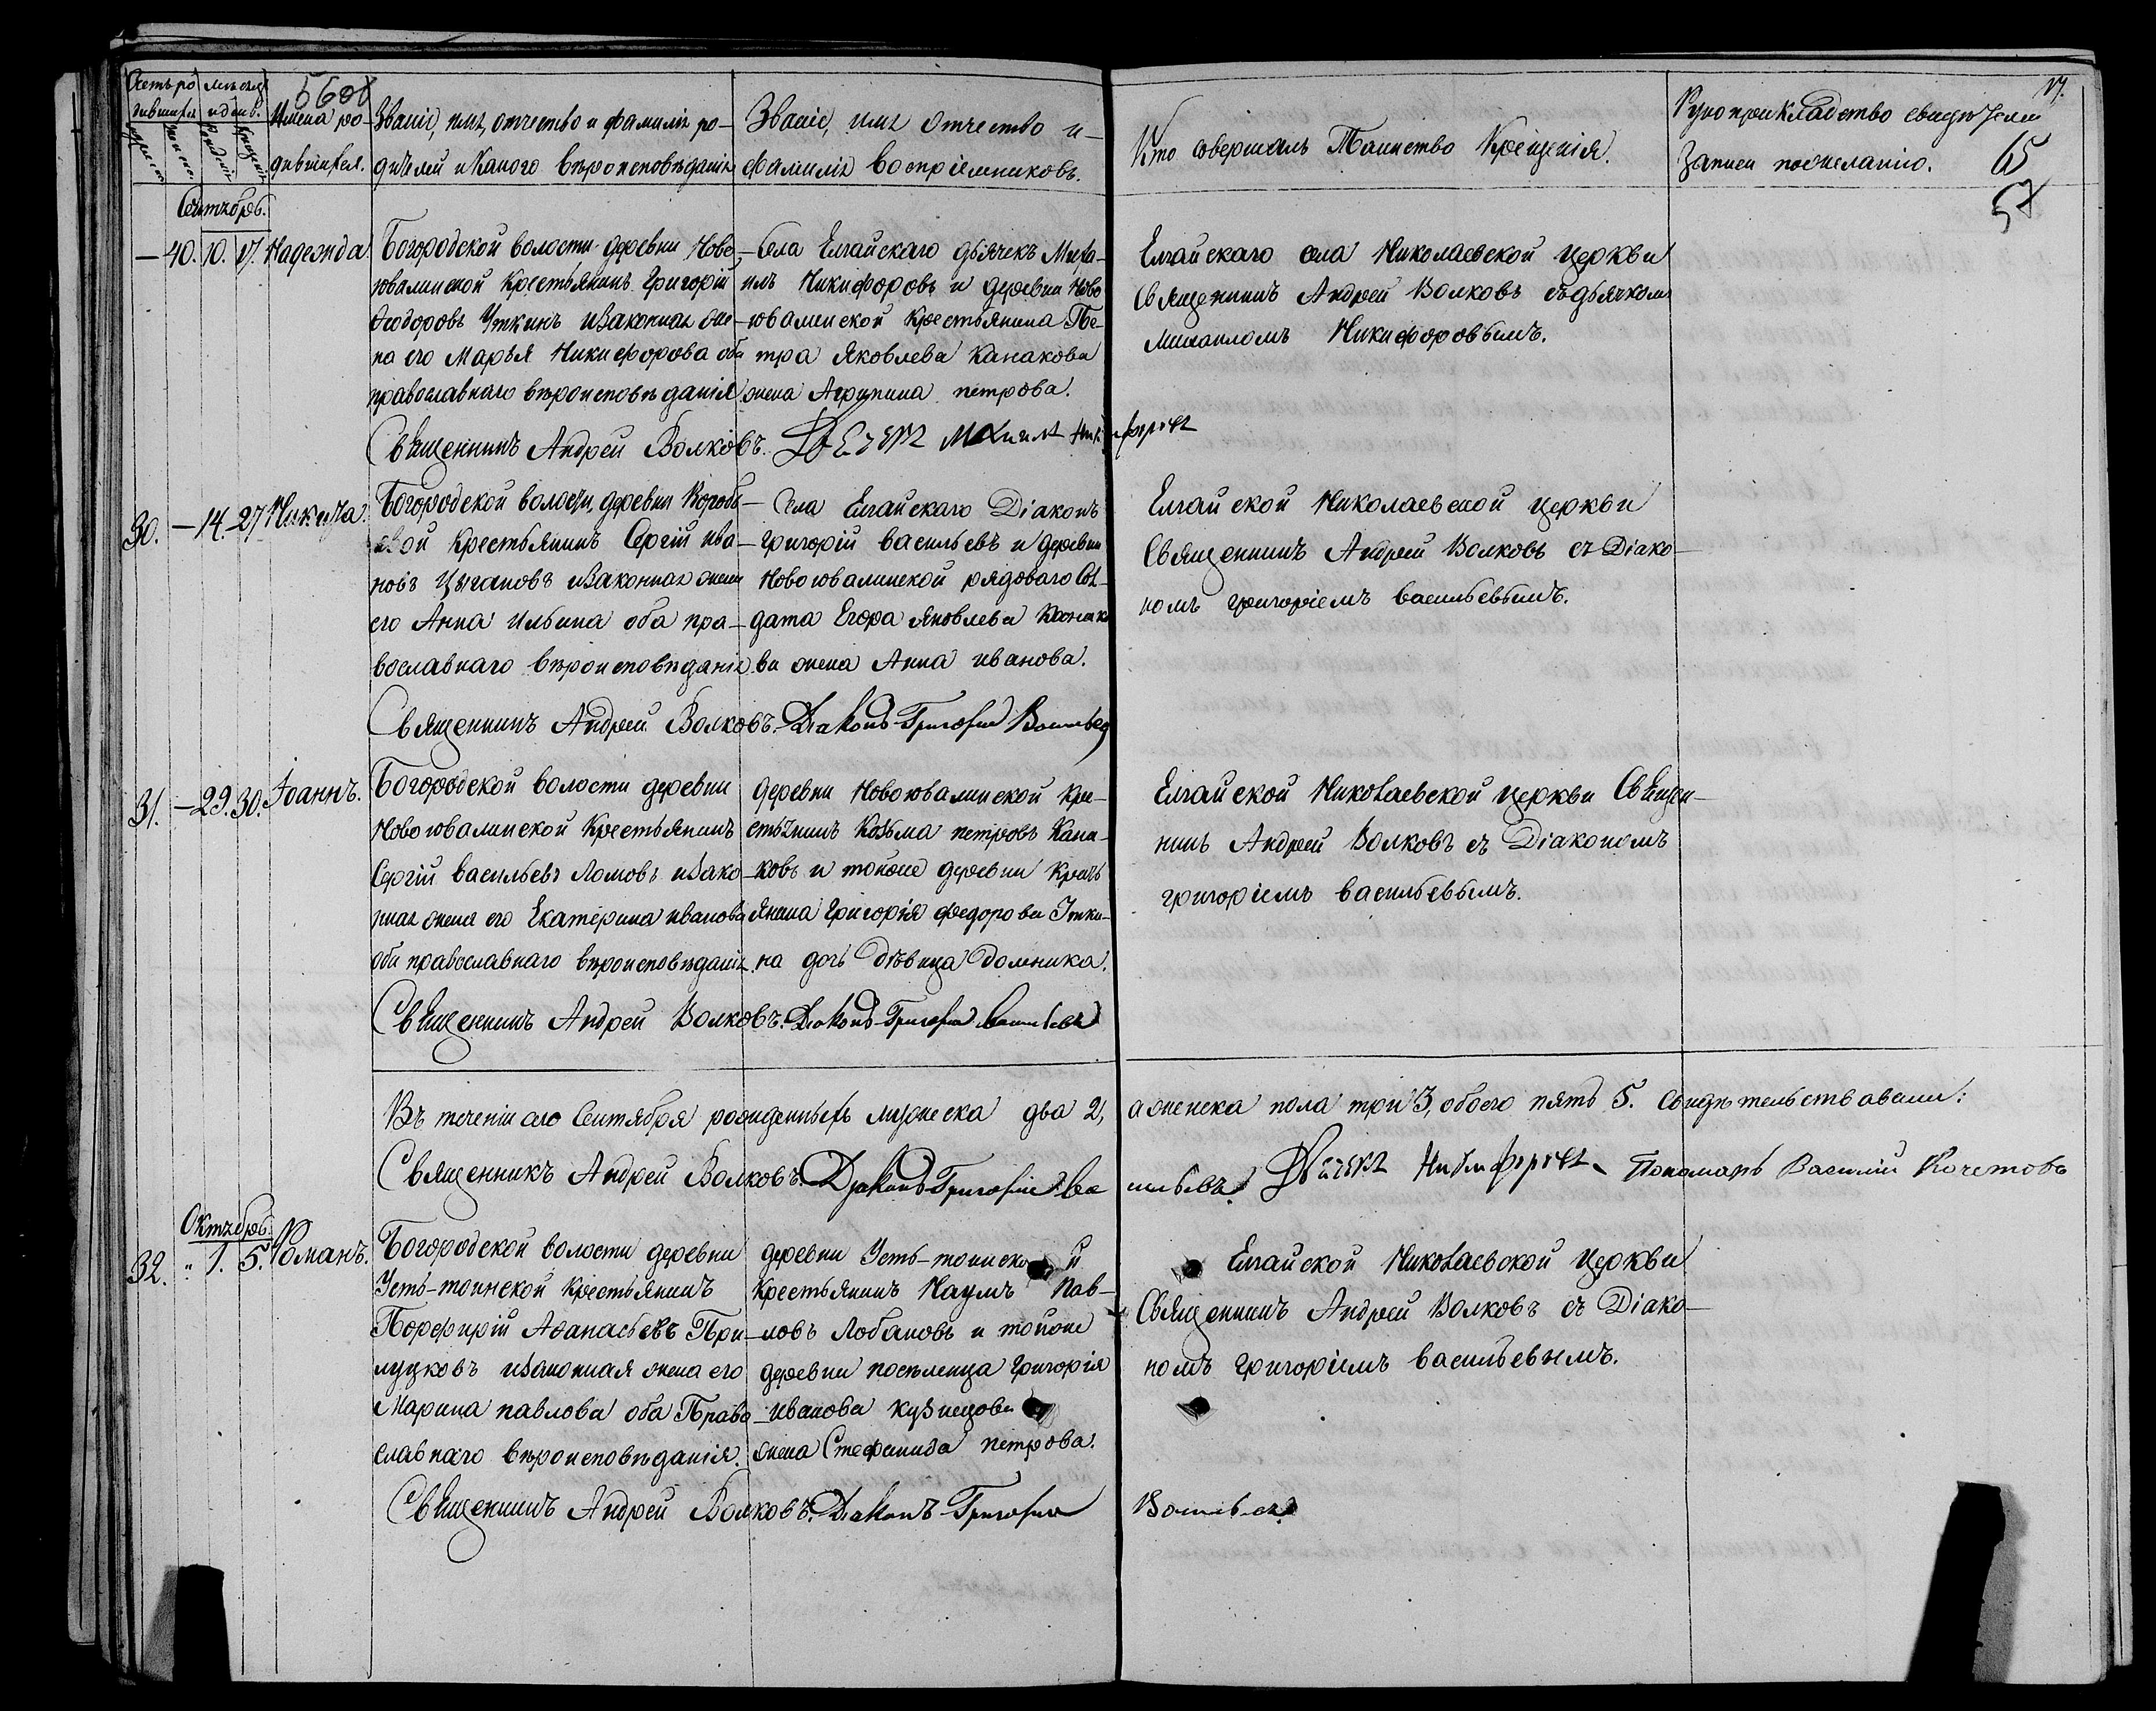 560об
Счетъ ро-
дившихся
мѣсяцъ
и день.
Имена ро-
дившихся.
Званіе, имя, отчество и фамилія ро-
дителей и какого вѣроисповѣданія
Званіе, имя отчество и
фамилія воспріемниковъ.
Кто совершалъ Таинство Крещенія.
Рукоприкладство свидѣтелей
записи пожеланію.
65
57
Сентябрь.
— 40. 10. 17. Надежда.
Богородской волости деревни Ново-
ювалинской крестьянинъ Григорій
Ѳеодоровъ Уткинъ изаконная же-
на его Марья Никифорова оба
православнаго вѣроисповѣданія
Села Елгайскаго дьячекъ Миха-
илъ Никифоровъ и деревни Ново
ювалинской крестьянина Пе-
тра Яковлева Канакова
жена Агрипина петрова.
Елгайскаго села Николаевской церкви
Священникъ Андрей Волковъ съдьячкомъ
михаиломъ Никифоровымъ.
Священникъ Андрей Волковъ.
30. — 14. 27 Никита.
Богородской волости, деревни Воробь-
евой крестьянинъ Сергій ива-
новъ Цыгановъ изаконная жена
его Анна Ильина оба пра-
вославнаго вѣроисповѣданія
Села Елгайскаго Діаконъ
григорій васильевъ и деревни
Новоювалинской рядоваго Сол-
дата Егора Яковлева Канако
ва жена Анна иванова.
Елгайской Николаевской церкви
Священникъ Андрей Волковъ съ Діако-
номъ григоріемъ васильевымъ.
Священникъ Андрей Волковъ. Діаконъ Григорий Васильевъ
31. — 29. 30. Іоаннъ.
Богородской волости деревни
Новоювалинской Крестьянинъ
Сергій васильевъ Ломовъ изако-
нная жена его Екатерина иванова
оба православнаго вѣроисповѣданія.
деревни Новоювалинской кре-
стьянинъ Козьма петровъ Кана-
ковъ и тойже деревни Кресть
янина Григорія федорова Утки-
на дочь дѣвица Домника.
Елгайской Николаевской церкви Священ-
никъ Андрей Волковъ съ Діакономъ
григоріемъ васильевымъ.
Священникъ Андрей Волковъ. Діаконъ Григорий васильевъ
Въ теченіи сего Сентября рожденныхъ мужеска два 2, а женска пола три 3, обоего пять 5. Свидѣтельствовали:
Священникъ Андрей Волковъ. Діаконъ Григорій Васильевъ. Дьячекъ Никифоровъ Пономарь Василій Кочетовъ
Октябрь.
32. " 1. 5. Романъ.
Богородской волости деревни
Усть-тоинской крестьянинъ
Порфирій Аѳанасьевъ При-
луцковъ изаконная жена его
Марина павлова оба Право
славнаго вѣроисповѣданія.
деревни Усть-тоинской
Крестьянинъ Наумъ Пав-
ловъ Лобановъ и тойже
деревни поселенца григорія
Иванова кузнецова
жена Стефанида петрова.
Елгайской Николаевской Церкви
Священникъ Андрей Волковъ съ Діако-
номъ григоріемъ васильевымъ.
Священникъ Андрей Волковъ. Діаконъ Григорий Васильевъ